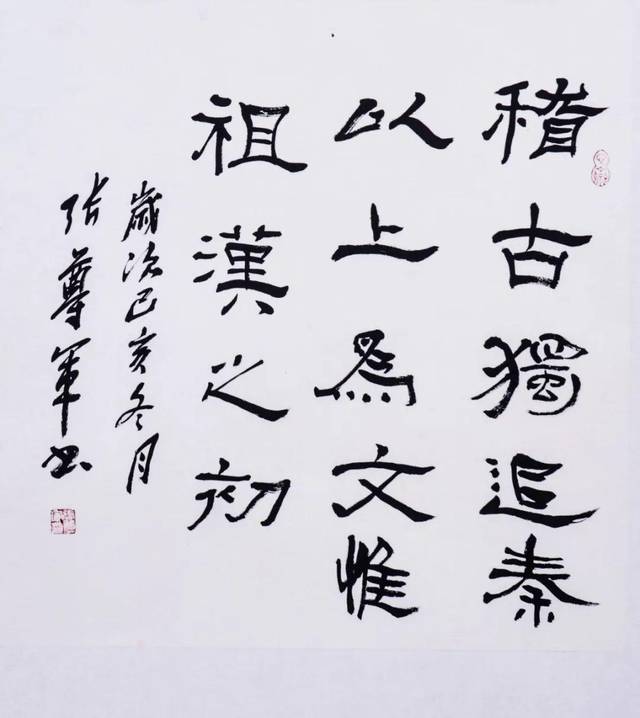 稽古獨追秦
以上為文惟
祖漢之初
歲次己亥冬月
張尊軍书